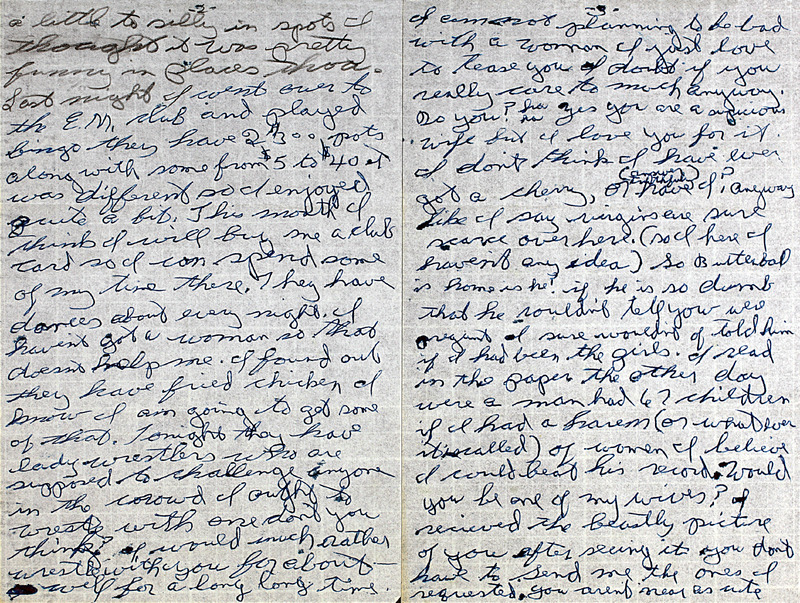 2
a little to silly in spots I
thought it was pretty
funny in places thoa-
Last night I went over to
the E.M. club and played
bingo they have 2 $300 pots
along with some from $5 to $40 it
was different so I enjoyed
quite a bit. This month I
think I will buy me a club
card so I can spend some
of my time there. They have
dances about every night. I
havent got a woman so that
doesnt help me. I found out
they have fried chicken I
know I am going to get some
of that. Tonight they have
lady wrestlers who are
supposed to challenge anyone
in the crowd I ought to
wrestle with one dont you
think? I would much rather
wrestle with you for about—
well for a long long time.
3
I am not planning to be bad
with a woman I just love
to tease you I doubt if you
really care to much anyway.
Do you? ha ha yes you are a
wife but I love you for it.
I dont think I have ever
got a cherry, or have I? anyway
like I say virgins are sure
scarce over here. (so I hear I
havent any idea) So Butterball
is home is he? if he is so dumb
that he couldnt tell you were
pregnant I sure wouldnt of told him
if I had been the girls. I read
in the paper the other day
were a man had 67 children
if I had a harem (or what ever
it is called) of women I believe
I could beat his record. Would
you be one of my wives? I
recieved the beastly picture
of you after seeing it you dont
have to send me the ones I
requested. you arent near as cute